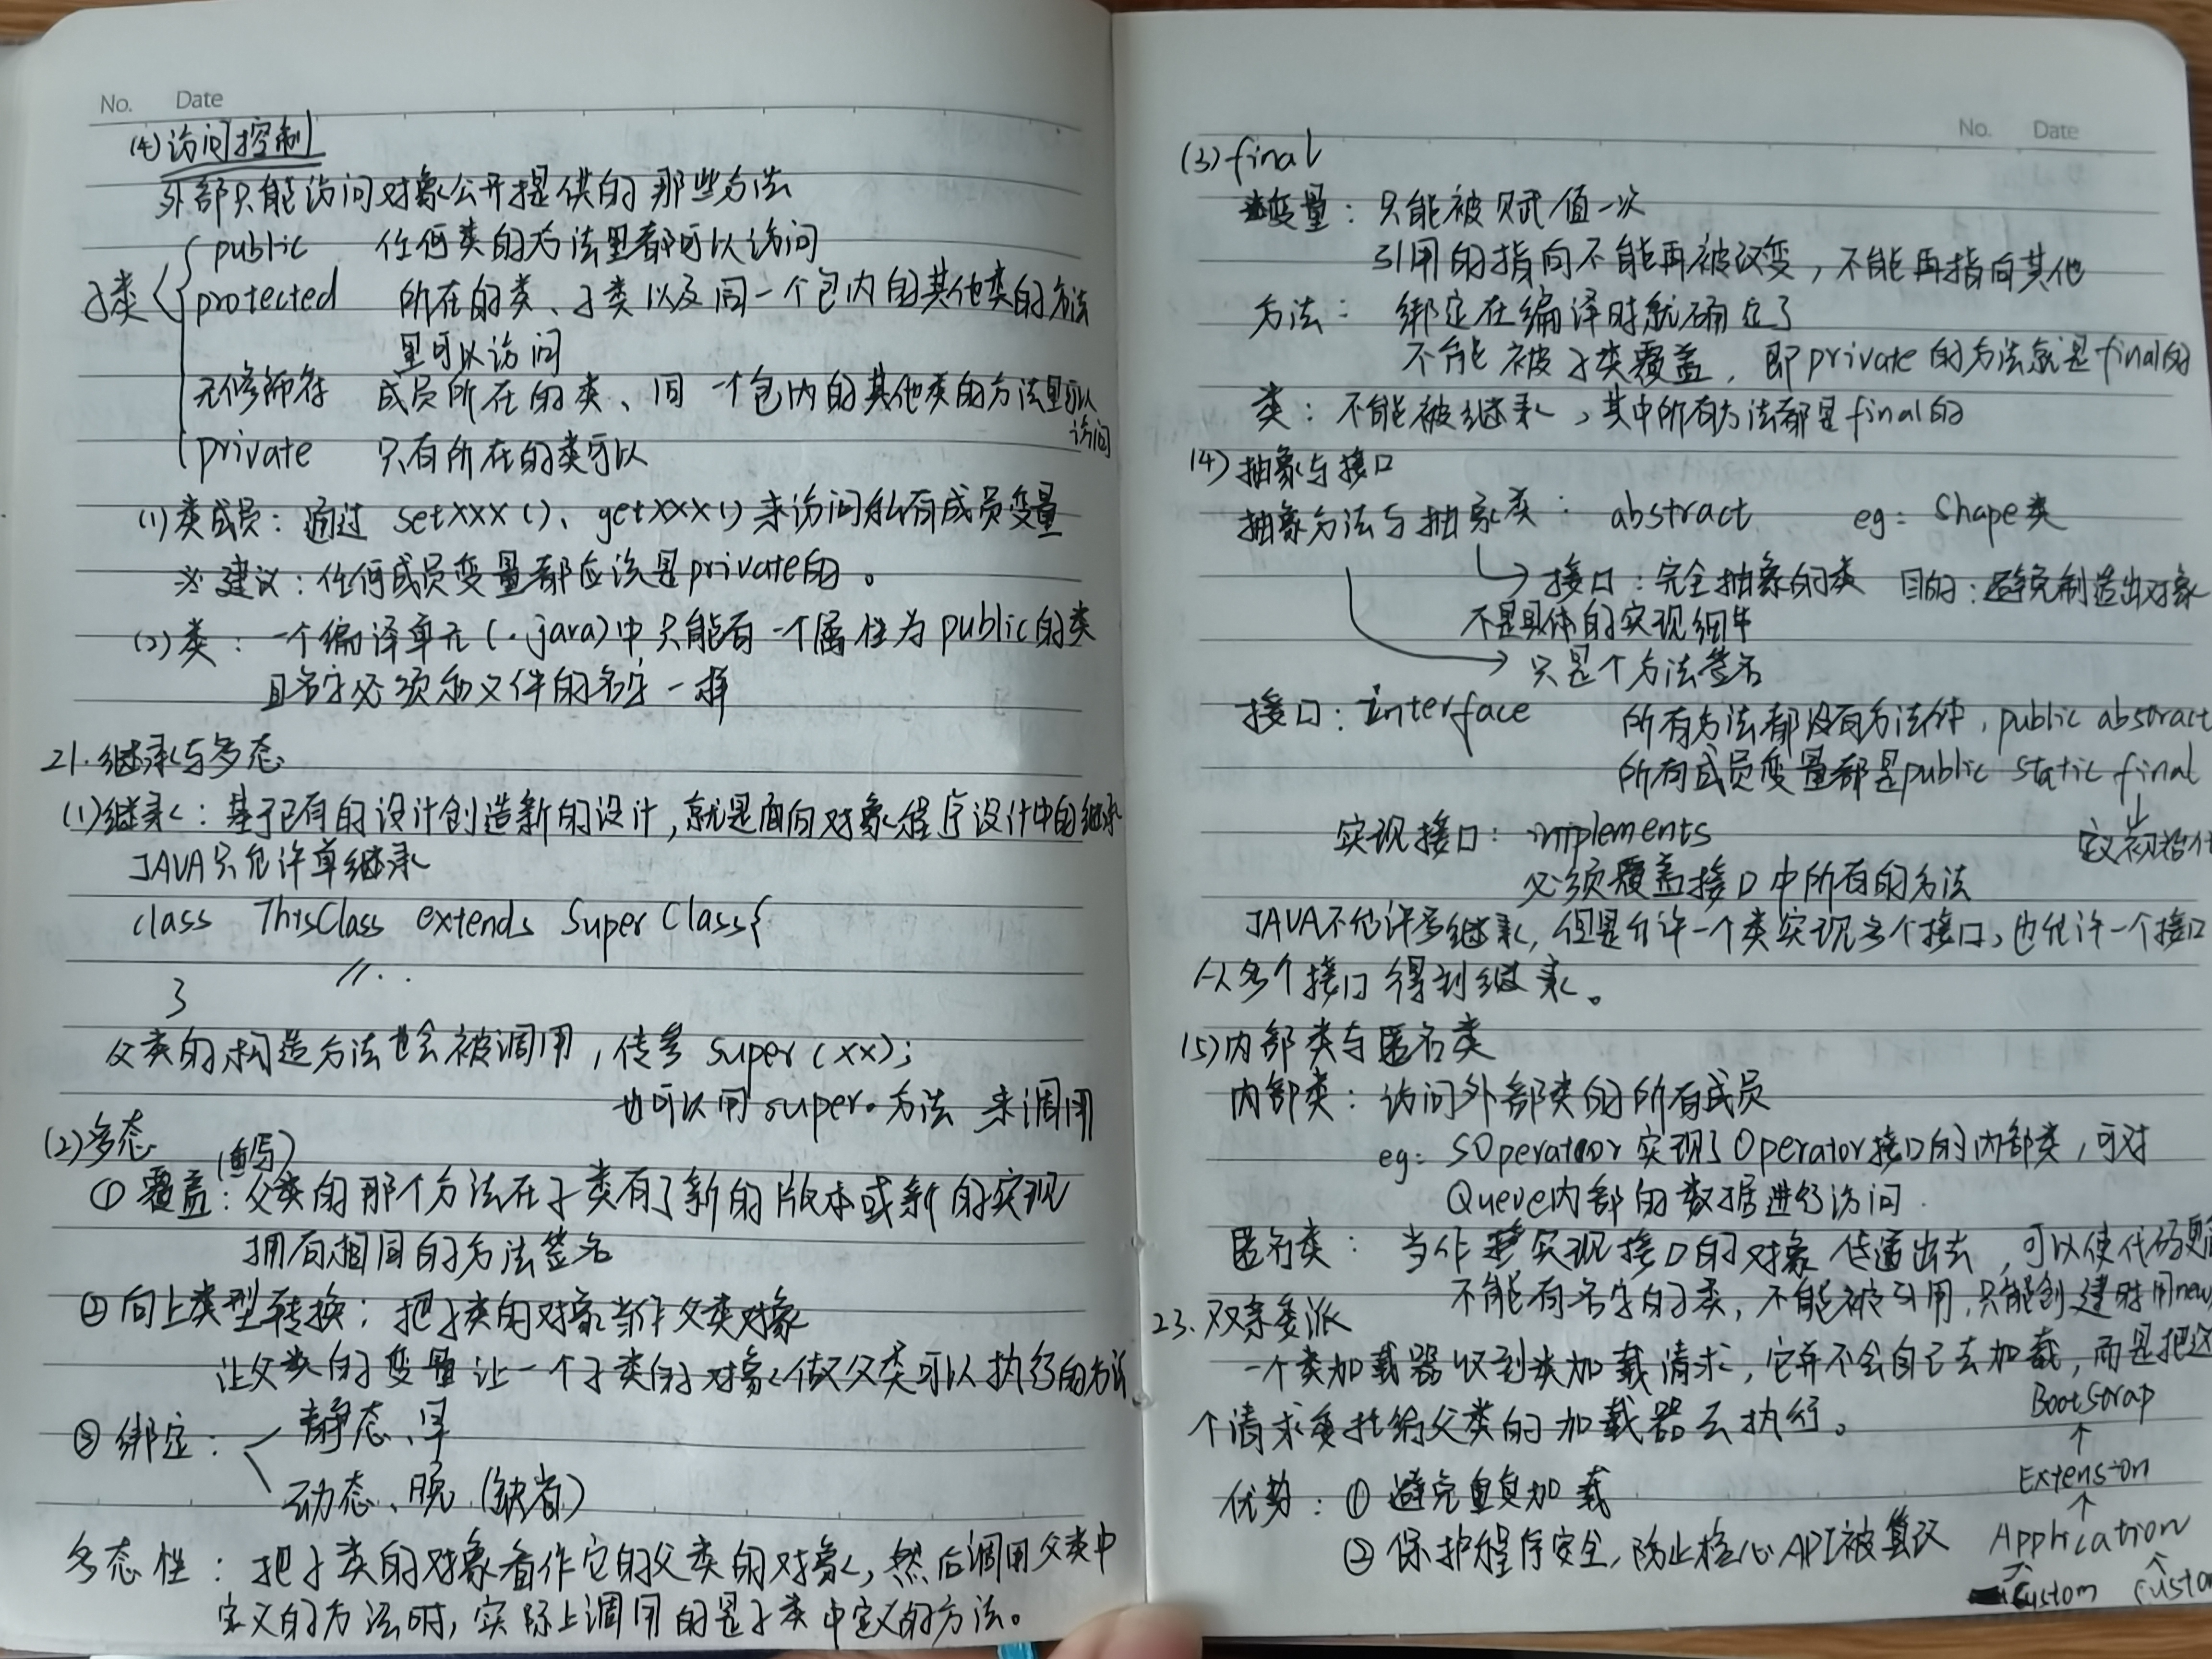 No. Date
(4)访问控制
外部只能访问对象公开提供的那些方法
public 任何类的方法里都可以访问
子类 protected 所在的类、子类以及同一个包内的其他类的方法
里可以访问
无修饰符 成员所在的类、同一个包内的其他类的方法里可以
访问
private 只有所在的类可以
(1)类成员：通过 setXXX()、getXXX()来访问私有成员变量
※建议：任何成员变量都应该是private的。
(2)类：一个编译单元(.java)中只能有一个属性为public的类
且名字必须和文件的名字一样
21.继承与多态
(1)继承：基于已有的设计创造新的设计，就是面向对象程序设计中的继承
JAVA只允许单继承
class ThisClass extends SuperClass{
//..
}
父类的构造方法也会被调用，传参 super(xx);
也可以用super.方法 来调用
(2)多态
(重写)
①覆盖：父类的那个方法在子类有了新的版本或新的实现
拥有相同的方法签名
②向上类型转换：把子类的对象当作父类对象
让父类的变量让一个子类的对象做父类可以执行的方法
③绑定： 静态、早
动态、晚(缺省)
多态性：把子类的对象看作它的父类的对象，然后调用父类中
定义的方法时，实际上调用的是子类中定义的方法。
No. Date
(3)final
变量：只能被赋值一次
引用的指向不能再被改变，不能再指向其他
方法：绑定在编译时就确定了
不能被子类覆盖，即private的方法就是final的
类：不能被继承，其中所有方法都是final的
(4)抽象与接口
抽象方法与抽象类：abstract eg：Shape类
接口：完全抽象的类 目的：避免制造出对象
不是具体的实现细节
只是个方法签名
接口：interface 所有方法都没有方法体，public abstract
所有成员变量都是public static final
实现接口：implements 定义初始化
必须覆盖接口中所有的方法
JAVA不允许多继承，但是允许一个类实现多个接口，也允许一个接口
从多个接口得到继承。
(5)内部类与匿名类
内部类：访问外部类的所有成员
eg：SOperator实现了Operator接口的内部类，可对
Queue内部的数据进行访问.
匿名类：当作实现接口的对象传递出去，可以使代码更
不能有名字的子类，不能被引用，只能创建时用new
23.双亲委派
一个类加载器收到类加载请求，它并不会自己去加载，而是把这
个请求委托给父类的加载器去执行。
Bootstrap
Extension
优势：①避免重复加载
②保护程序安全，防止核心API被篡改
Application
Custom Custom